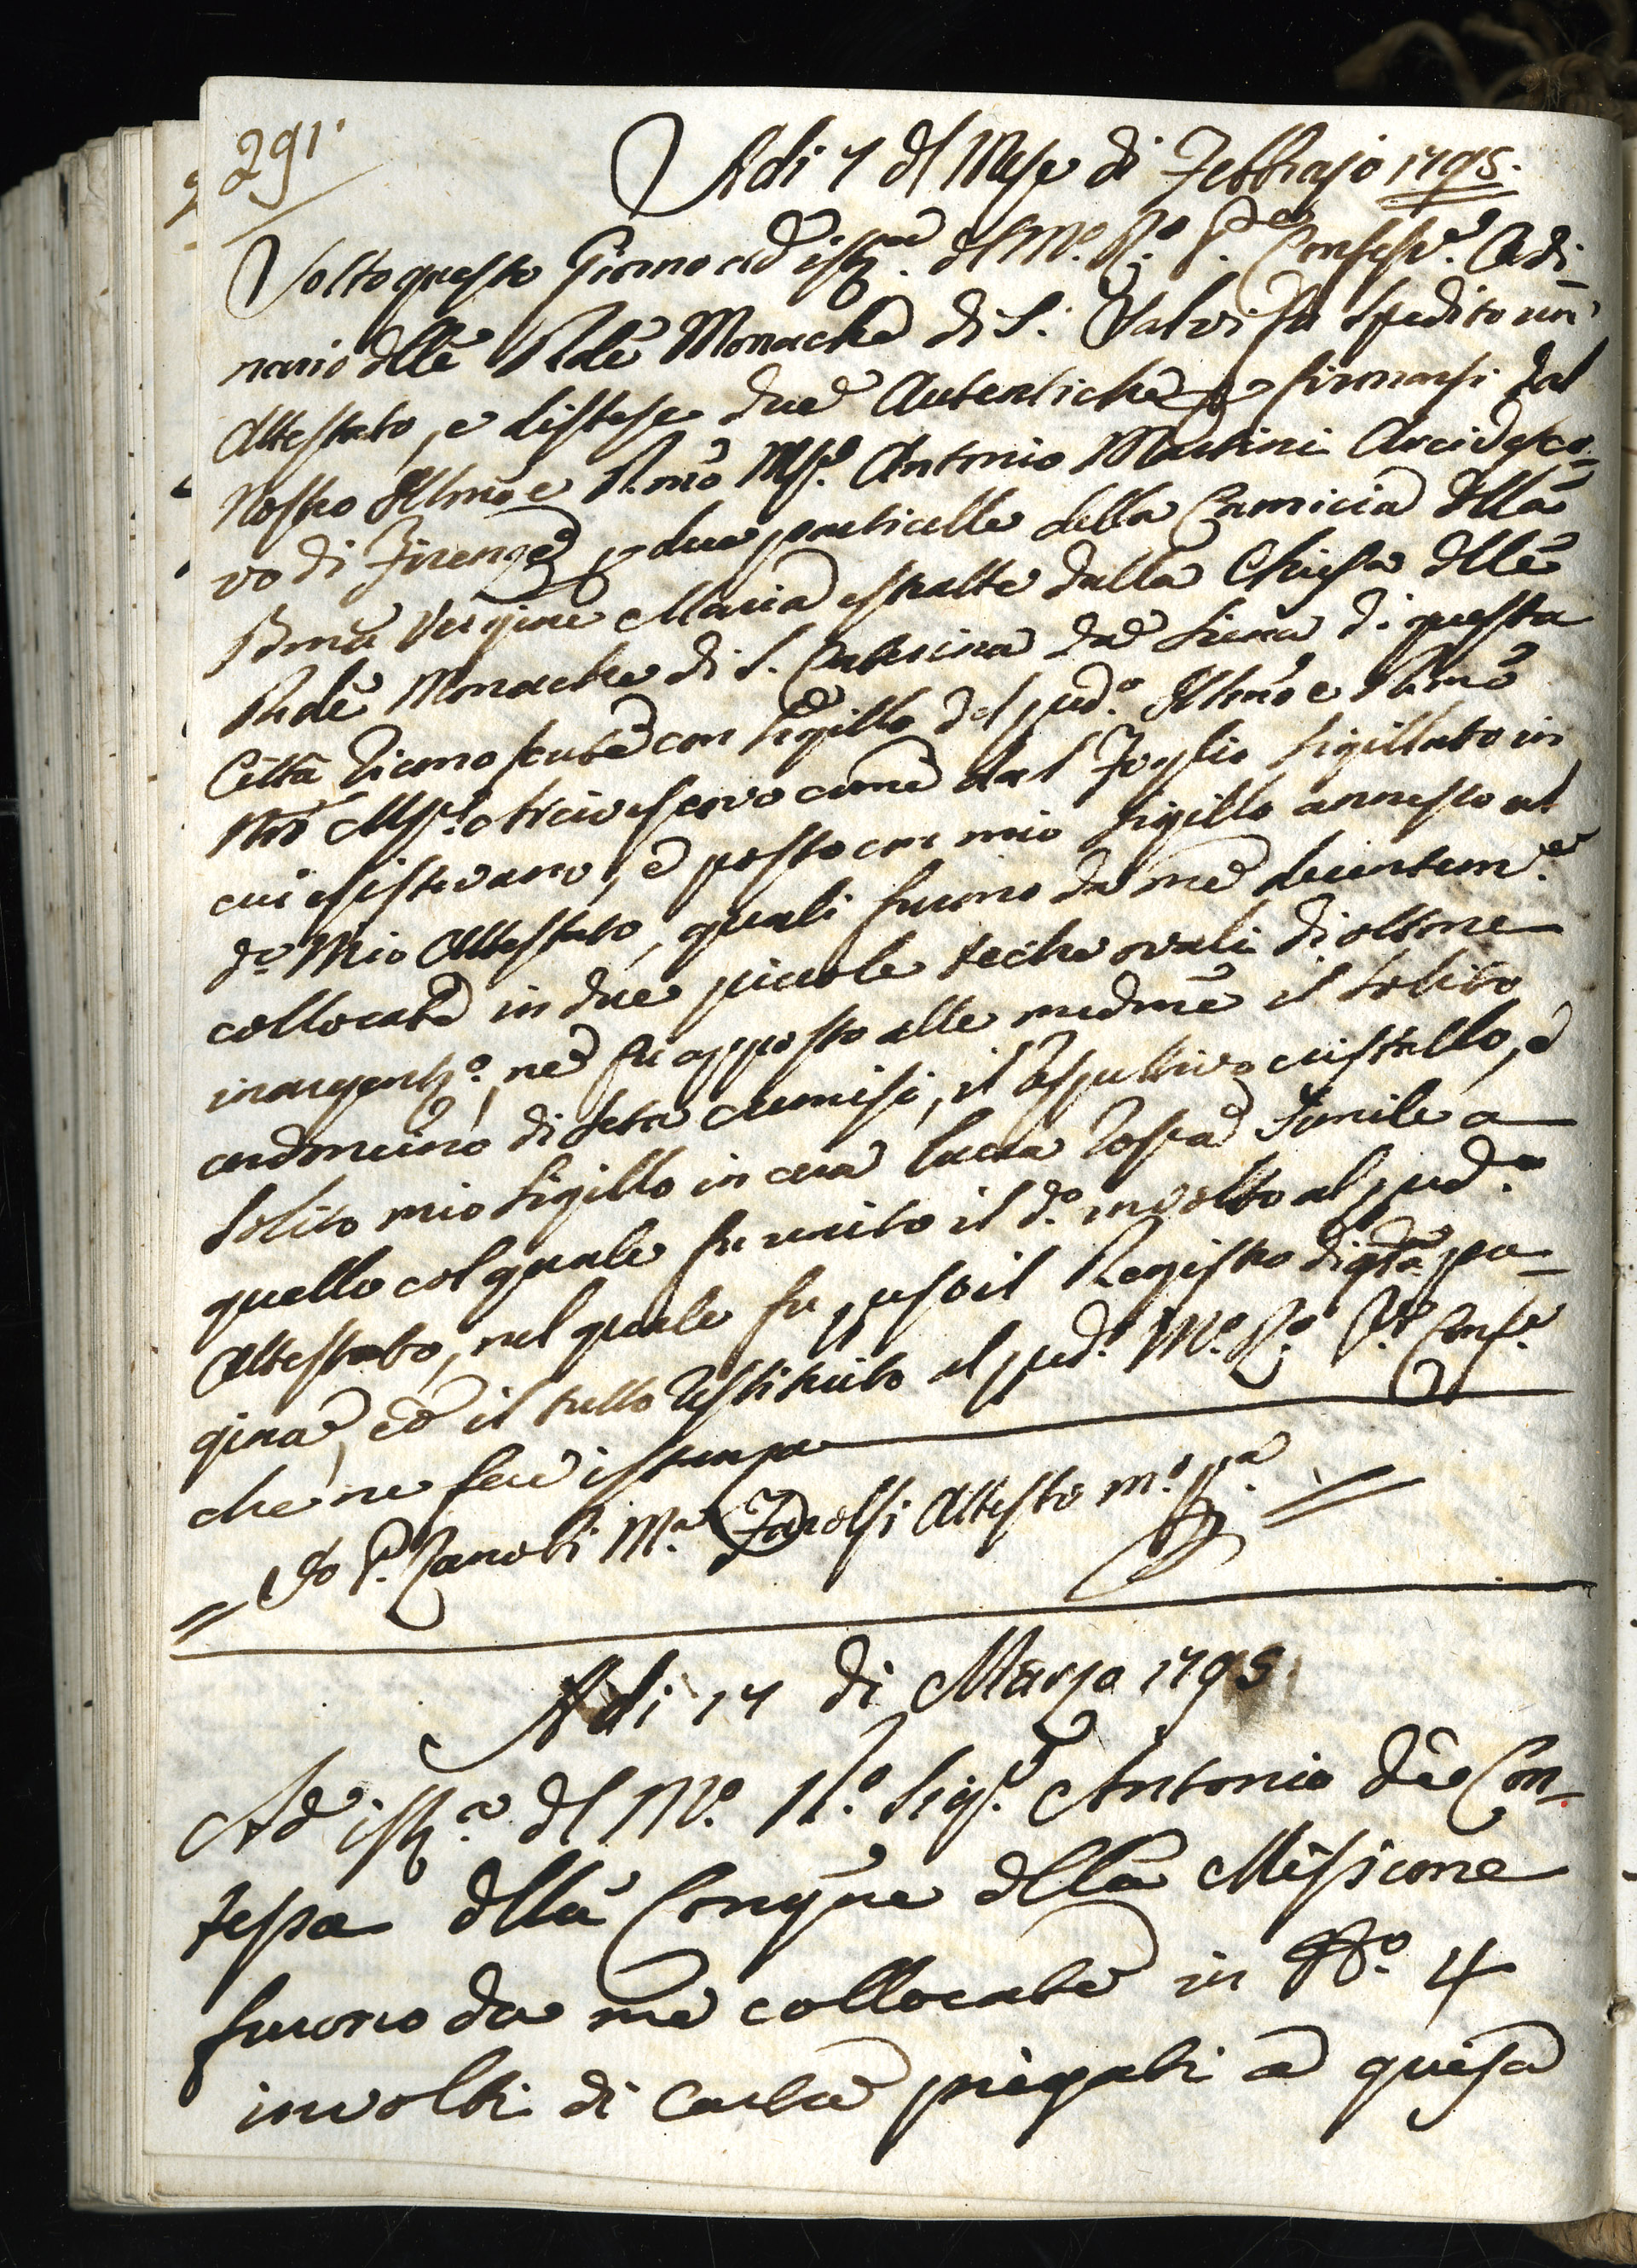 291.
Adi 7 dl Mese di Febbrajo 1795.
Sotto questo Giorno ad istza. dl Mo. Ro. P. Confesse. Ordi
nario dlle Rde Monache di S. Salvi fu spedito un
Attestato, e distese due Autentiche p firmarsi dal
Nostro Illmo e Rmo Msr. Antonio Martini Arcivesco=
vo di Firenze p due particelle della Camicia dlla
Bma Vergine Maria estratte dalla Chiesa dlle
Rde Monache di S. Caterina da Siena di questa
Città con Sigillo del pdo. Illmo e Rmo
Nro Msr. Arcivescovo come dal Foglio sigillato in
cui esistevano, e posto con mio sigillo annesso al
do Mio Attestato, quali furono da me decentemte
collocate in due piccole teche ovali di ottone
inargento., ne fu apposto alle medme il solito
cordoncino di seta cremisi, il rispettivo cristallo, e
solito mio Sigillo in cera lacca rossa simile a
quello col quale fu unito il do. involto al pred.o
Attestato, nel quale fu preso il Registro di qta pa=
gina, ed il tutto restituito al pred.o Mo. Ro. Pe. Confe.
che ne fece istanza
= Io P. Zanobi Ma. Attesto mo. pa. =
Adi 17 di Marzo 1795
Ad istza. dl Mo. Ro. Sigr. Antonio de Con=
tessa dlla Congne dlla Missione
furono da me collocate in No. 4
involti di Carta piegati a guisa